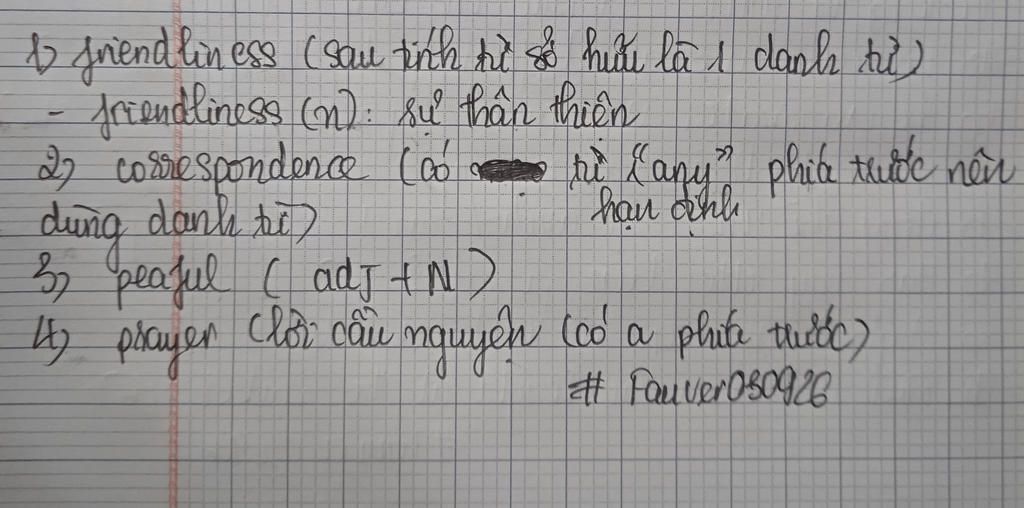 1) friendliness (sau tính từ sở hữu là 1 danh từ)
- friendliness (n): sự thân thiện
2) correspondence (có từ "any" phía trước nên
hạn định
dùng danh từ)
3) peaful (adj + N)
4) prayer (lời cầu nguyện (có a phía trước)
# Fauver030926